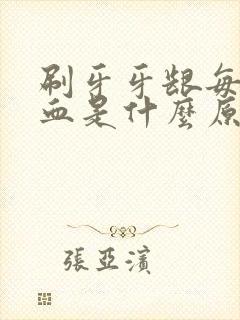 刷牙牙龈每
血是什麼原
張亞濱